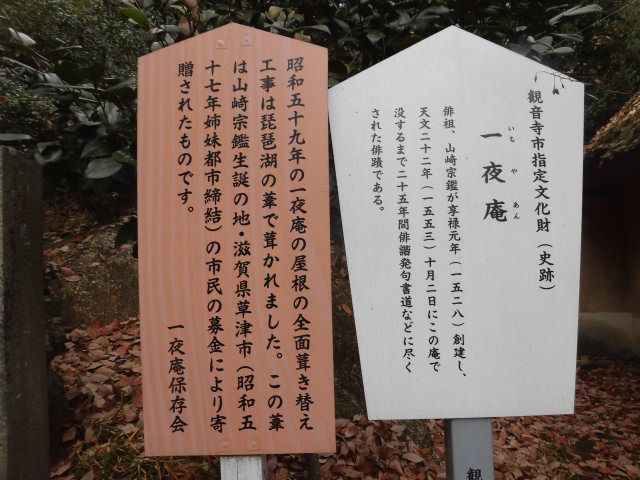 観音寺市指定文化財（史跡）
いちやあん
一夜庵
俳祖、山崎宗鑑が享禄元年（一五二八）創建し、
天文二十二年（一五五三）十月二日にこの庵で
没するまで二十五年間俳諧発句書道などに尽く
された俳蹟である。
観
昭和五十九年の一夜庵の屋根の全面葺き替え
工事は琵琶湖の葦で葺かれました。この葦
は山崎宗鑑生誕の地・滋賀県草津市（昭和五
十七年姉妹都市締結）の市民の募金により寄
贈されたものです。
一夜庵保存会